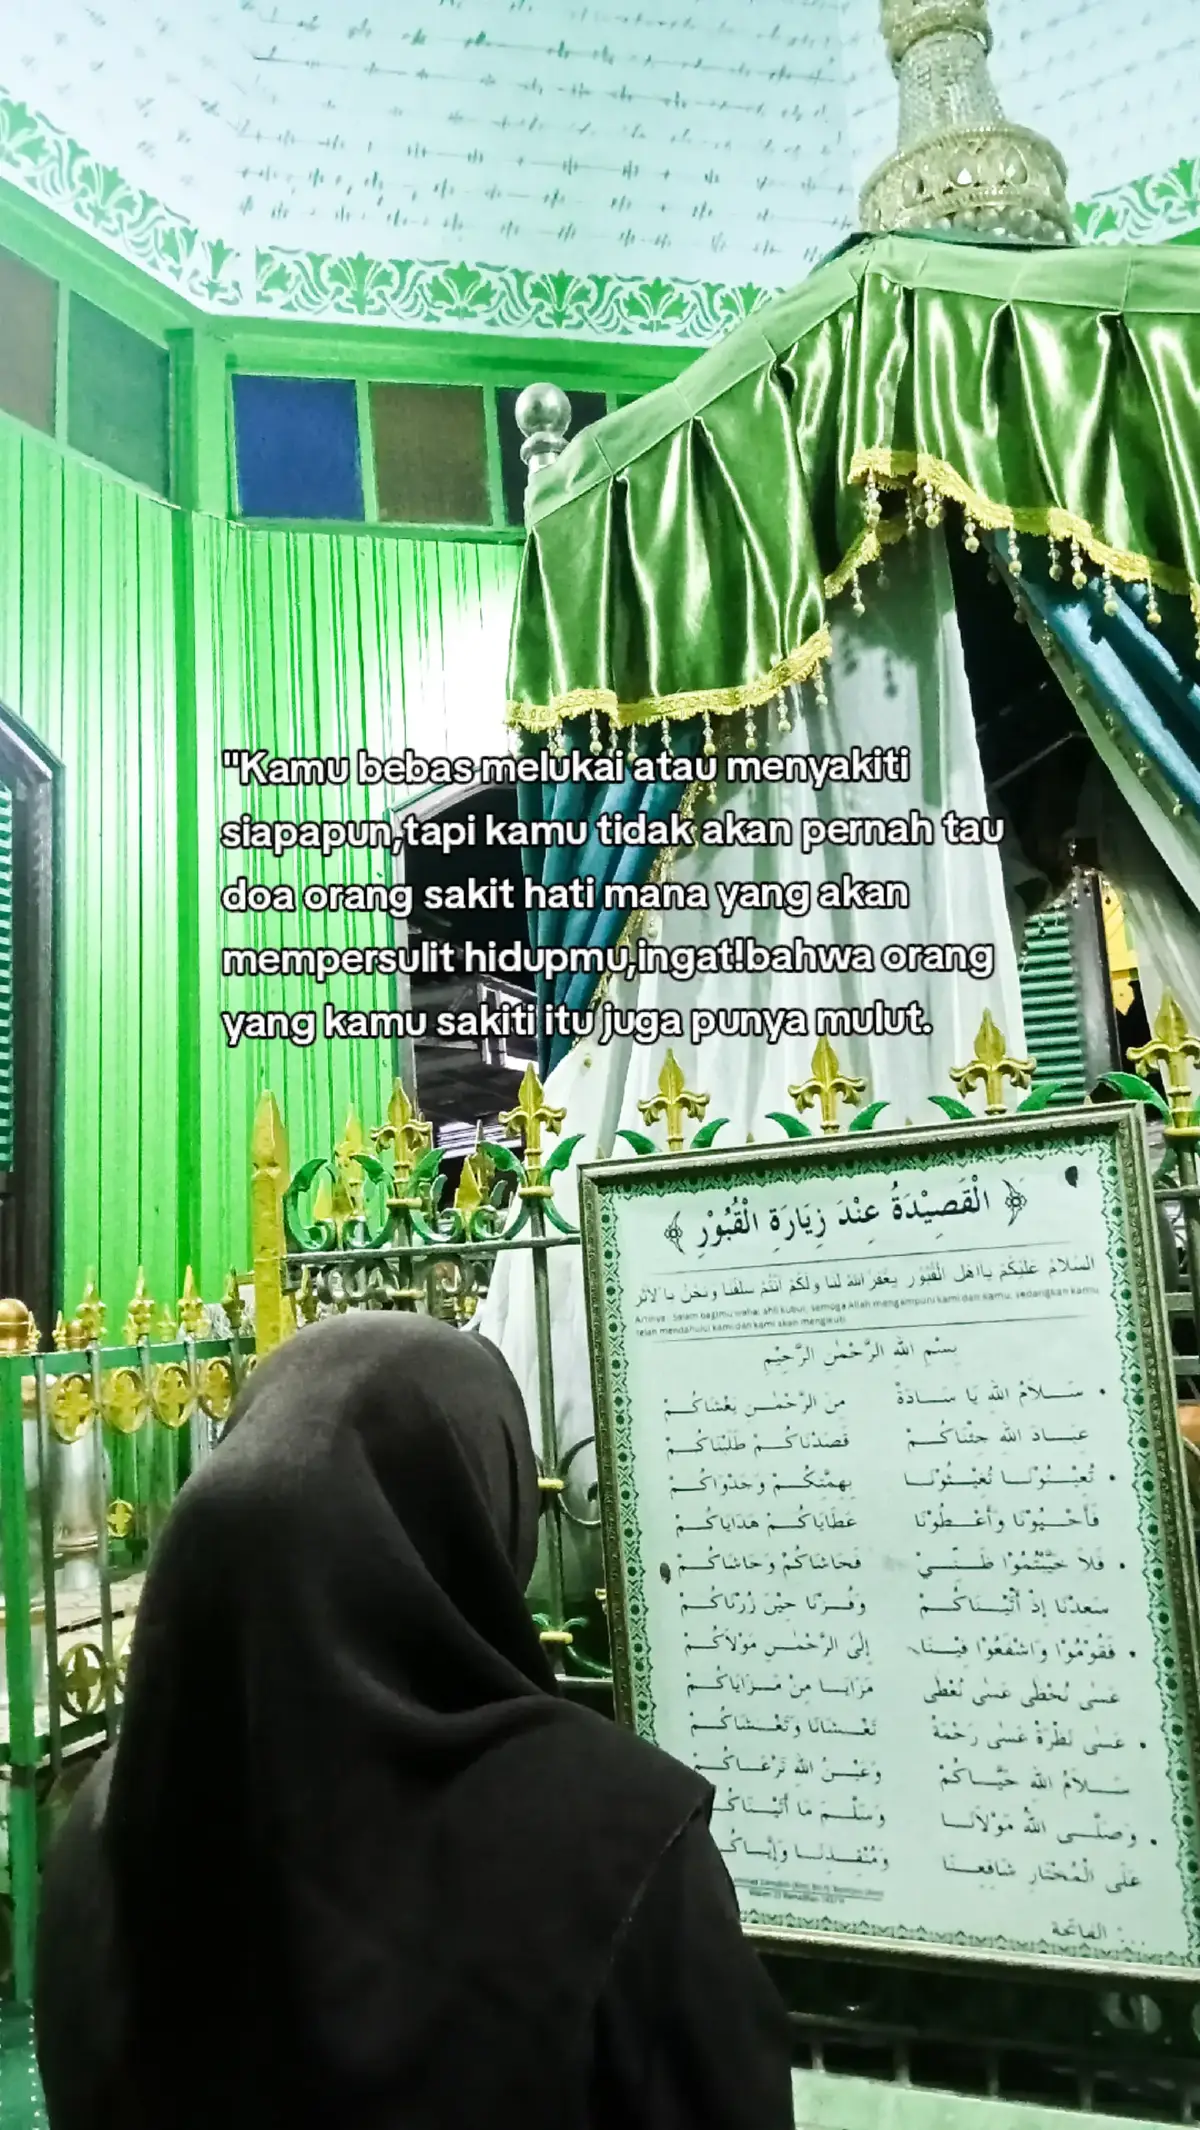 "Kamu bebas melukai atau menyakiti
siapapun,tapi kamu tidak akan pernah tau
doa orang sakit hati mana yang akan
mempersulit hidupmu,ingat!bahwa orang
yang kamu sakiti itu juga punya mulut.
الْقَصِيْدَةُ عِنْدَ زِيَارَةِ الْقُبُوْرِ
السَّلَامُ عَلَيْكُمْ يَا اَهْلَ الْقُبُوْرِ يَغْفِرُ اللهُ لَنَا وَلَكُمْ اَنْتُمْ سَلَفُنَا وَنَحْنُ بِالْاَثَرِ
Artinya : Salam bagimu wahai ahli kubur, semoga Allah mengampuni kami dan kamu, sedangkan kamu
telah mendahului kami dan kami akan mengikuti
بِسْمِ اللهِ الرَّحْمٰنِ الرَّحِيْمِ
سَـلَامُ اللهِ يَا سَـادَةْ مِنَ الرَّحْمٰـنِ يَغْشَاكُـمْ
عِبَـادَ اللهِ جِئْنَاكُـمْ قَصَدْنَاكُـمْ طَلَبْنَاكُـمْ
تُعِيْـنُوْنَـا تُغِيْـثُوْنَـا بِهِمَّتِكُـمْ وَجَدْوَاكُـمْ
فَأَحْـبُوْنَا وَأَعْـطُوْنَا عَطَايَاكُـمْ هَدَايَاكُـمْ
فَلَا خَيَّبْتُمُوْا ظَـنِّـيْ فَحَاشَاكُمْ وَحَاشَاكُـمْ
سَعِدْنَا إِذْ أَتَيْـنَاكُـمْ وَفُـزْنَا حِيْنَ زُرْنَاكُـمْ
فَقُوْمُوْا وَاشْفَعُوْا فِيْـنَا إِلَى الرَّحْمٰـنِ مَوْلَاكُـمْ
عَسَى نُحْظَى عَسَى نُعْطَى مَزَايَـا مِنْ مَـزَايَاكُـمْ
عَسَى نَظْرَةْ عَسَى رَحْمَةْ تَغْـشَانَا وَتَغْـشَاكُـمْ
سَـلَامُ اللهِ حَيَّـاكُمْ وَعَيْـنُ اللهِ تَرْعَـاكُـمْ
وَصَلَّـى اللهُ مَوْلَانَـا وَسَلَّـمَ مَا أَتَيْـنَاكُـ
عَلَى الْمُخْتَارِ شَافِعِـنَا وَمُنْقِـذِنَـا وَإِيَّـاكُـ
الفاتحة